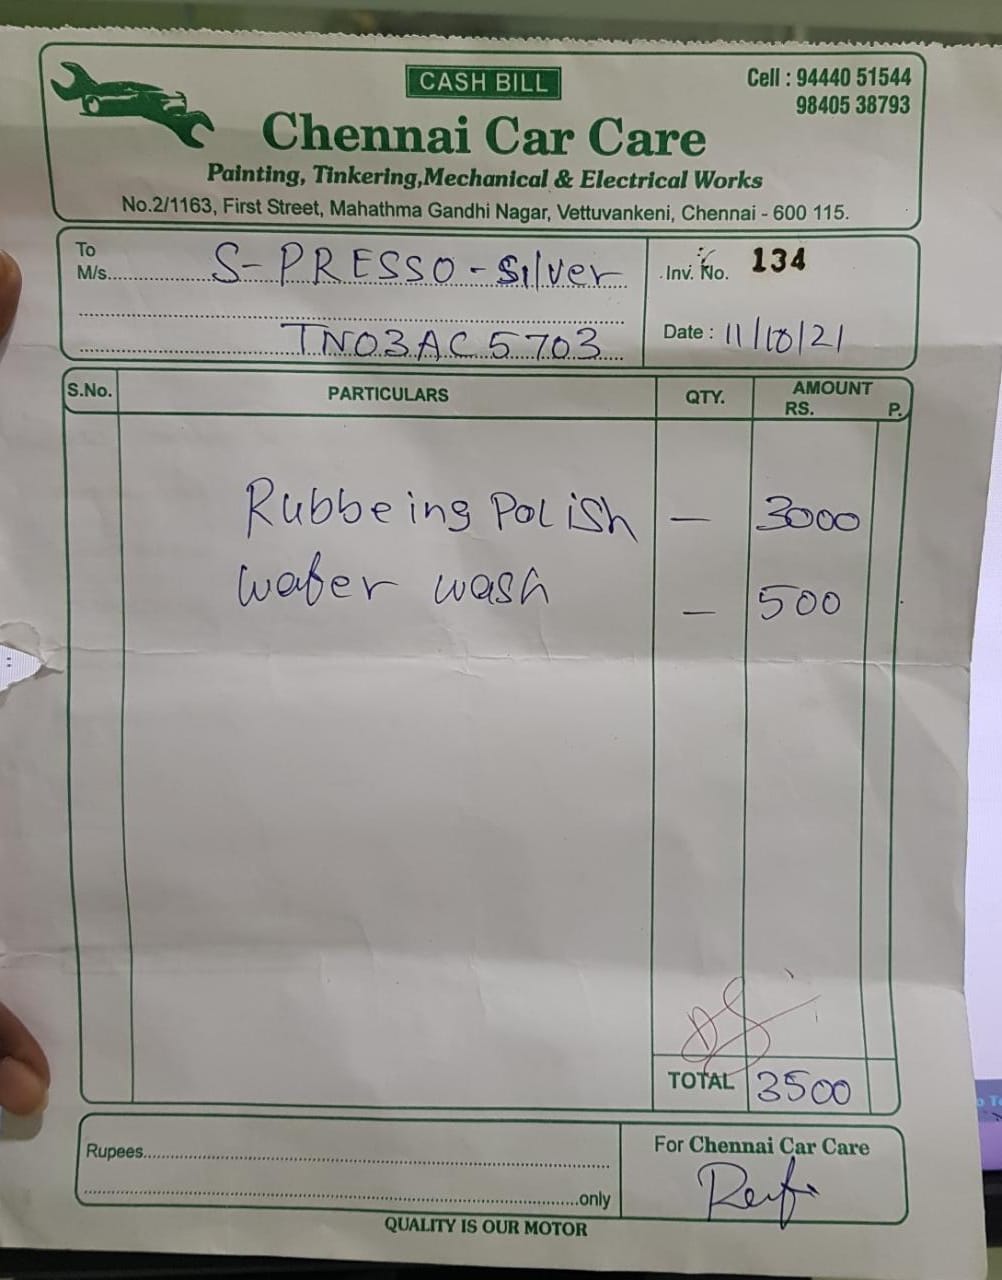 CASH BILL
Cell : 94440 51544
98405 38793
Chennai Car Care
Painting, Tinkering,Mechanical & Electrical Works
No.2/1163, First Street, Mahathma Gandhi Nagar, Vettuvankeni, Chennai - 600 115.
To
M/s. S-PRESSO - Silver
TN03AC 5703
Inv. No. 134
Date : 11/10/21
S.No. PARTICULARS QTY. AMOUNT
RS. P.
Rubbeing Polish — 3000
water wash — 500
TOTAL 3500
Rupees
only
For Chennai Car Care
QUALITY IS OUR MOTOR